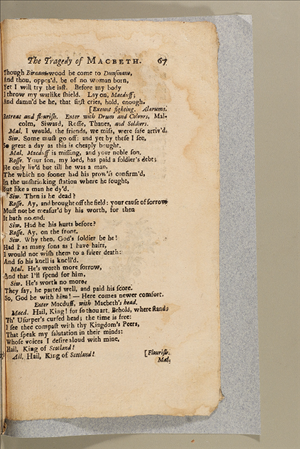 The Tragedy of MACBETH. 67
Though Birnam-wood be come to Dunsinane,
And thou, oppos'd, be of no woman born,
Yet I will try the last. Before my body
I throw my warlike shield. Lay on, Macduff;
And damn'd be he, that first cries, hold, enough.
[Exeunt fighting. Alarums.
Retreat and flourish. Enter with Drums and Colours, Mal-
colm, Siward, Rosse, Thanes, and Soldiers.
Mal. I would, the friends, we miss, were safe arriv'd.
Siw. Some must go off: and yet by these I see,
So great a day as this is cheaply bought.
Mal. Macduff is missing, and your noble son.
Rosse. Your son, my lord, has paid a soldier's debt;
He only liv'd but till he was a man,
The which no sooner had his prowess confirm'd,
In the unshrinking station where he fought,
But like a man he dy'd.
Siw. Then is he dead?
Rosse. Ay, and brought off the field: your cause of sorrow
Must not be measur'd by his worth, for then
It hath no end.
Siw. Had he his hurts before?
Rosse. Ay, on the front.
Siw. Why then, God's soldier be he!
Had I as many sons as I have hairs,
I would not wish them to a fairer death:
And so his knell is knoll'd.
Mal. He's worth more sorrow,
And that I'll spend for him.
Siw. He's worth no more;
They say, he parted well, and paid his score.
So, God be with him! — Here comes newer comfort.
Enter Macduff, with Macbeth's head.
Macd. Hail, King! for so thou art. Behold, where stands
Th' Usurper's cursed head; the time is free:
I see thee compast with thy Kingdom's Peers,
That speak my salutation in their minds:
Whose voices I desire aloud with mine,
Hail, King of Scotland!
All. Hail, King of Scotland! [Flourish.
Mal.